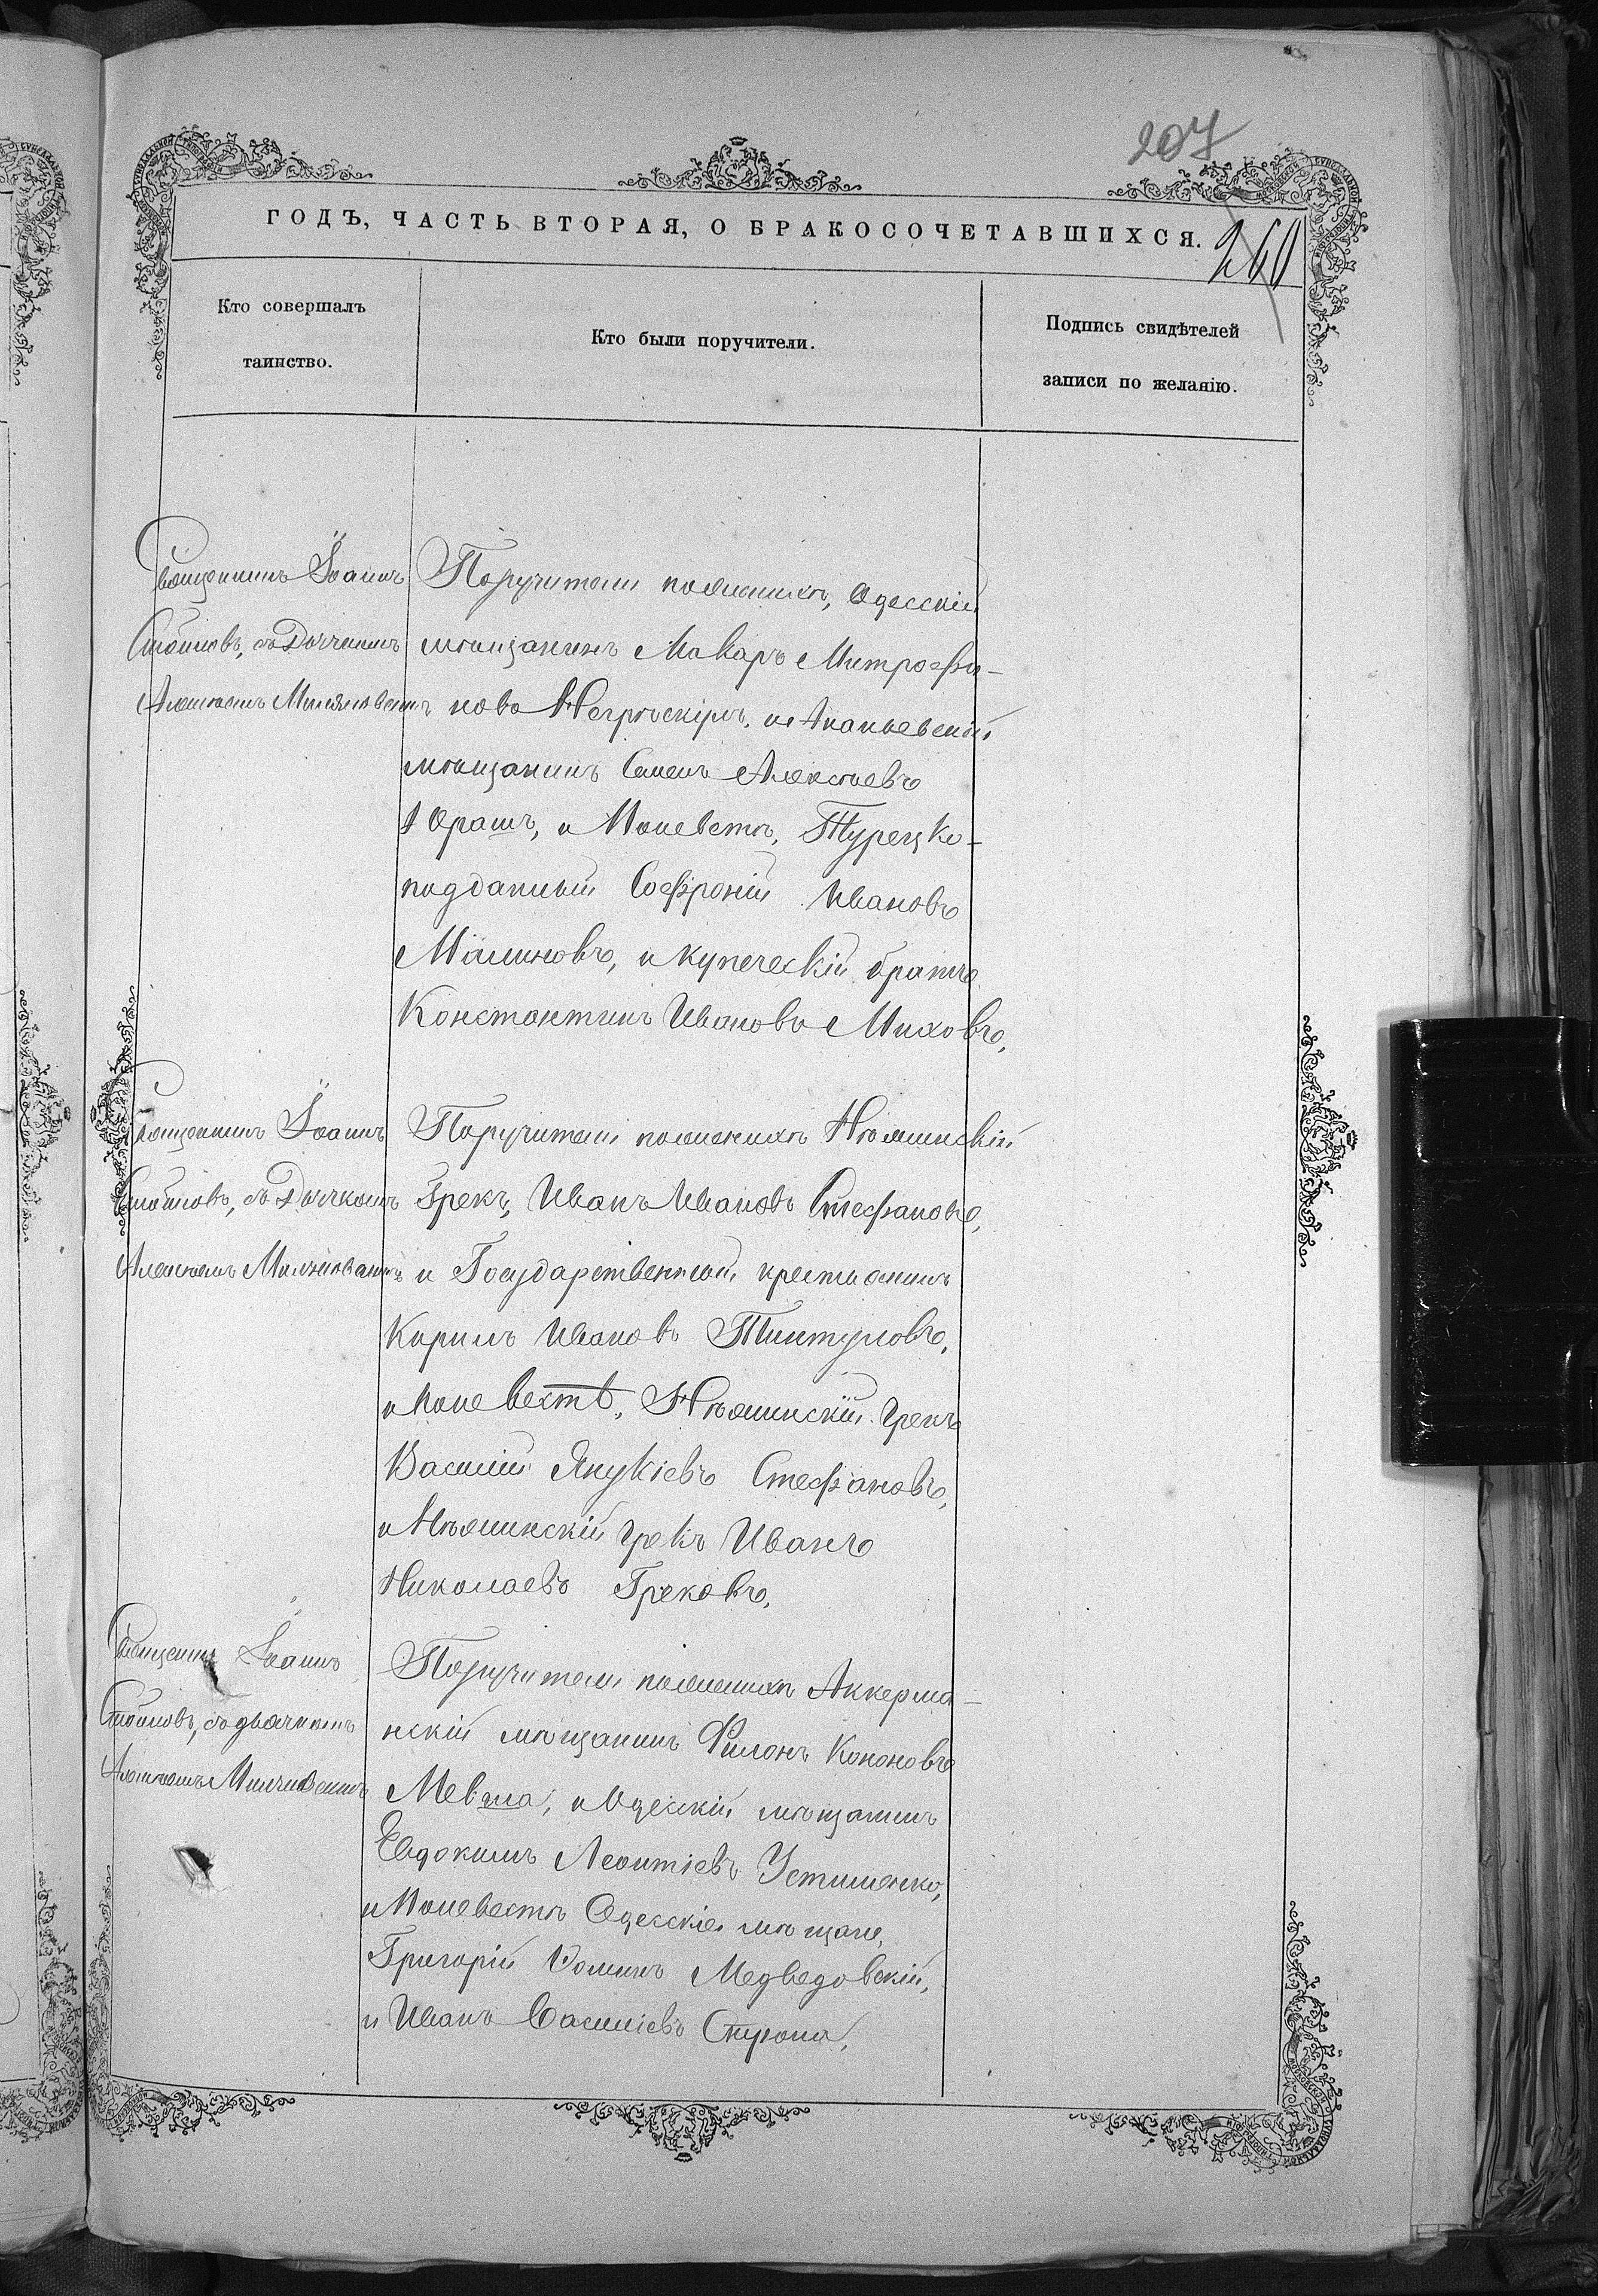 207
ГОДЪ, ЧАСТЬ ВТОРАЯ, О БРАКОСОЧЕТАВШИХСЯ.
260
Кто совершалъ
таинство.
Кто были поручители.
Подпись свидѣтелей
записи по желанію.
Священникъ Іоаннъ
Стоиковъ, съ Дьячкомъ
Алексѣемъ
Поручители по женихѣ, Одесскій
мѣщанинъ Макаръ Митрофа-
новъ и Ананьевскій
мѣщанинъ Семенъ Алексѣевъ
Юрашъ, и По невѣстѣ, Турецко-
подданный Софроній Ивановъ
Малиновъ, и купеческій братъ
Константинъ Ивановъ Миховъ,
Священникъ Іоаннъ
Стоиковъ, съ Дьячкомъ
Алексѣемъ
Поручители по женихѣ Нѣжинскій
Грекъ, Иванъ Ивановъ Стефановъ,
и Государственный крестьянинъ
Кирилъ Ивановъ
и По невѣстѣ, Нѣжинскій Грекъ
Василій Янукіевъ Стефановъ,
и Нѣжинскій Грекъ Иванъ
Николаевъ Грековъ,
Священникъ Іоаннъ
Стоиковъ, съ дьячкомъ
Алексѣемъ
Поручители по женихѣ Аккерма-
нскій мѣщанинъ Филонъ Кононовъ
и Одесскій мѣщанинъ
Евдокимъ Леонтіевъ Устименко,
и По невѣстѣ Одесскіе мѣщане,
Григорій Фоминъ Медведовскій,
и Иванъ Василіевъ